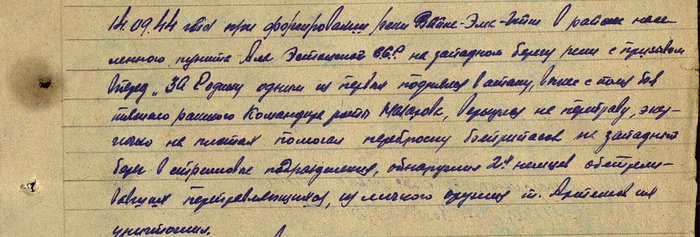 14.09.44 года при форсировании реки Вяйке-Эма-Йги в районе насе-
ленного пункта Аля Эстонской ССР на западном берегу реки с призывом
вперед „За Родину одним из первых поднялся в атаку, вынес с поля боя
тяжело раненого командира роты Макаров, вернулся на переправу,
на плотах помогал переброску боеприпасов на западный
берег в стрелковые подразделения, обнаружил 2х немцев обстрели-
вавших переправляющихся, из личного оружия т. Артемов их
уничтожил.